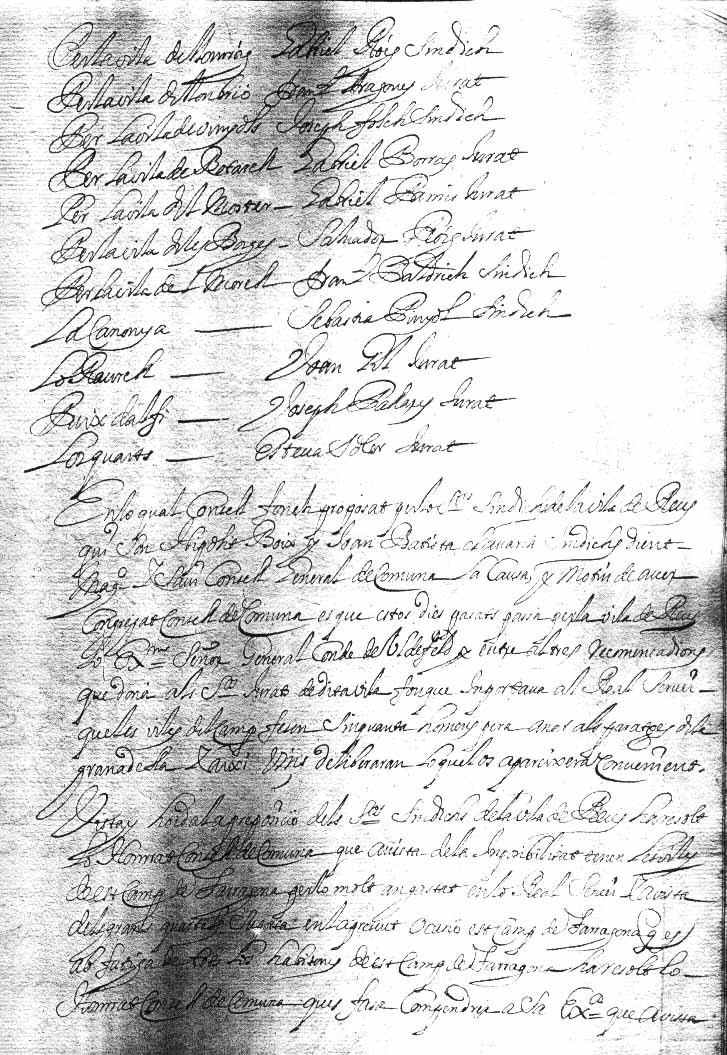 Per la vila de Monroig Gabriel Roig Sindich
Per la vila de Monbrio Franch Aragones Jurat
Per la vila de vinyols Joseph folch Sindich
Per la vila de Botarell Gabriel Borras Jurat
Per la vila del Morter Gabriel Jurat
Per la vila de les Borges Salvador Roig Jurat
Per la vila del Morell Franch Baldrich Sindich
La Canonja Sebastia Pinyol Sindich
Lo Raurell Joan Gil Jurat
Ruix dalfi Joseph Jurat
Los quarts Esteva Soler Jurat
En lo qual Consell fonch proposat per los Srs Sindichs de la vila de Reus
qui son Boix y Joan Batista Sindichs dient
Magch Consell General de Comuna La Causa, y Motiu de aver
Congregat Consell de Comuna es que estos dies pasats pasa per la vila de Reus
lo Exme Señor General Conde de y entre altres recomendacions
que dona als Srs Jurats de dita vila fonque importava al Real Servey
que les viles del Camp fesen Sinquanta homens pera anar als paratges de la
granadella y axi deliberaran lo quels apareixera Convenient.
Vista y hoida la preposicio dels Srs Sindichs de la vila de Reus ha resolt
lo Honrat Consell de Comuna que a vista de la imposibilitat tenen les viles
de est Camp de Tarragona per lo molt angostat en lo Real Servey y a vista
del gran en la present ocasio est Camp de Tarragona q es
de tots los habitans de est Camp de Tarragona ha resolt lo
Honrat Consell de Comuna ques fasa Compendre a Sa Exa que a vista